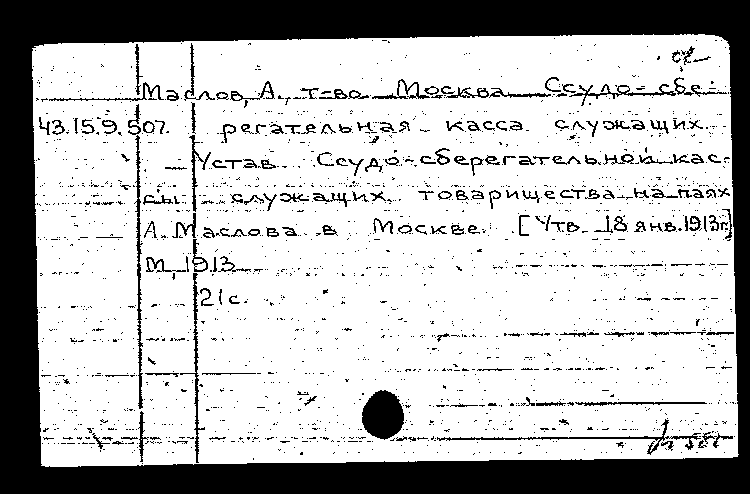 Маслов, А., т-во. Москва. Ссудо-сбе-
43.15.9.507. регательная касса служащих.
Устав Ссудо-сберегательной кас-
сы служащих товарищества на паях
А. Маслова в Москве. [Утв. 18 янв. 1913г.]
М., 1913.
21 с.